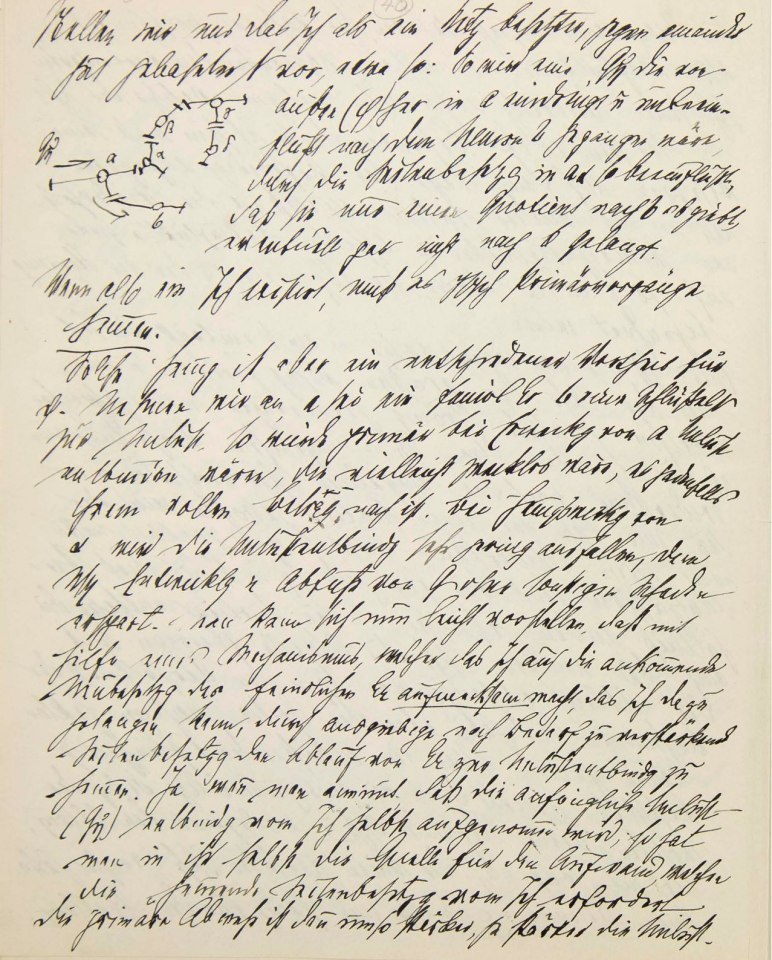 40
Stellen wir uns das Ich als ein Netz besetzter, gegen einander
gut gebahnter N vor, etwa so: So wird eine Qή die von
außen (φ) her in a eindringt u unbeein-
flußt nach dem Neuron b gegangen wäre,
durch die Seitenbesetzg in aα so beeinflußt,
daß sie nur einen Quotient nach b abgiebt,
eventuell gar nicht nach b gelangt.
Qή a b α β γ δ
Wenn also ein Ich existirt, muß es Primärvorgänge
hemmen.
Solche Hemg ist aber ein entschiedener Vortheil für
ψ. Nehmen wir an a sei ein Er b eine Schlüssel
zur Unlust, so würde primär bei Erweckg von a Unlust
entbunden werden, die vielleicht zwecklos wäre, es jedenfalls
ihrem vollen Betrag nach ist. Bei Hemgswirkg von
α wird die Unlustentbindg sehr gering ausfallen, dem
Entwicklg u Abfuhr von Q ohne sonstigen Schaden
erspart. Man kann sich nun leicht vorstellen, daß mit
Hilfe eines Mechanismus, welcher das Ich auf die ankommende
Neubesetzg des feindlichen Er aufmerksam macht, das Ich dazu
gelangen kann, durch ausgiebige nach Bedarf zu verstärkend
Seitenbesetzg den Ablauf von Er zur Unlustentbindg zu
hemmen. Ja wenn man annimmt, daß die anfängliche Unlust
(Qή) entbindg vom Ich selbst aufgenommen wird, so hat
man in ihr selbst die Quelle für den Aufwand, welchen
die hemmende Seitenbesetzg vom Ich erfordert
die primäre Abwehr ist dan umso stärker, je stärker die Unlust.